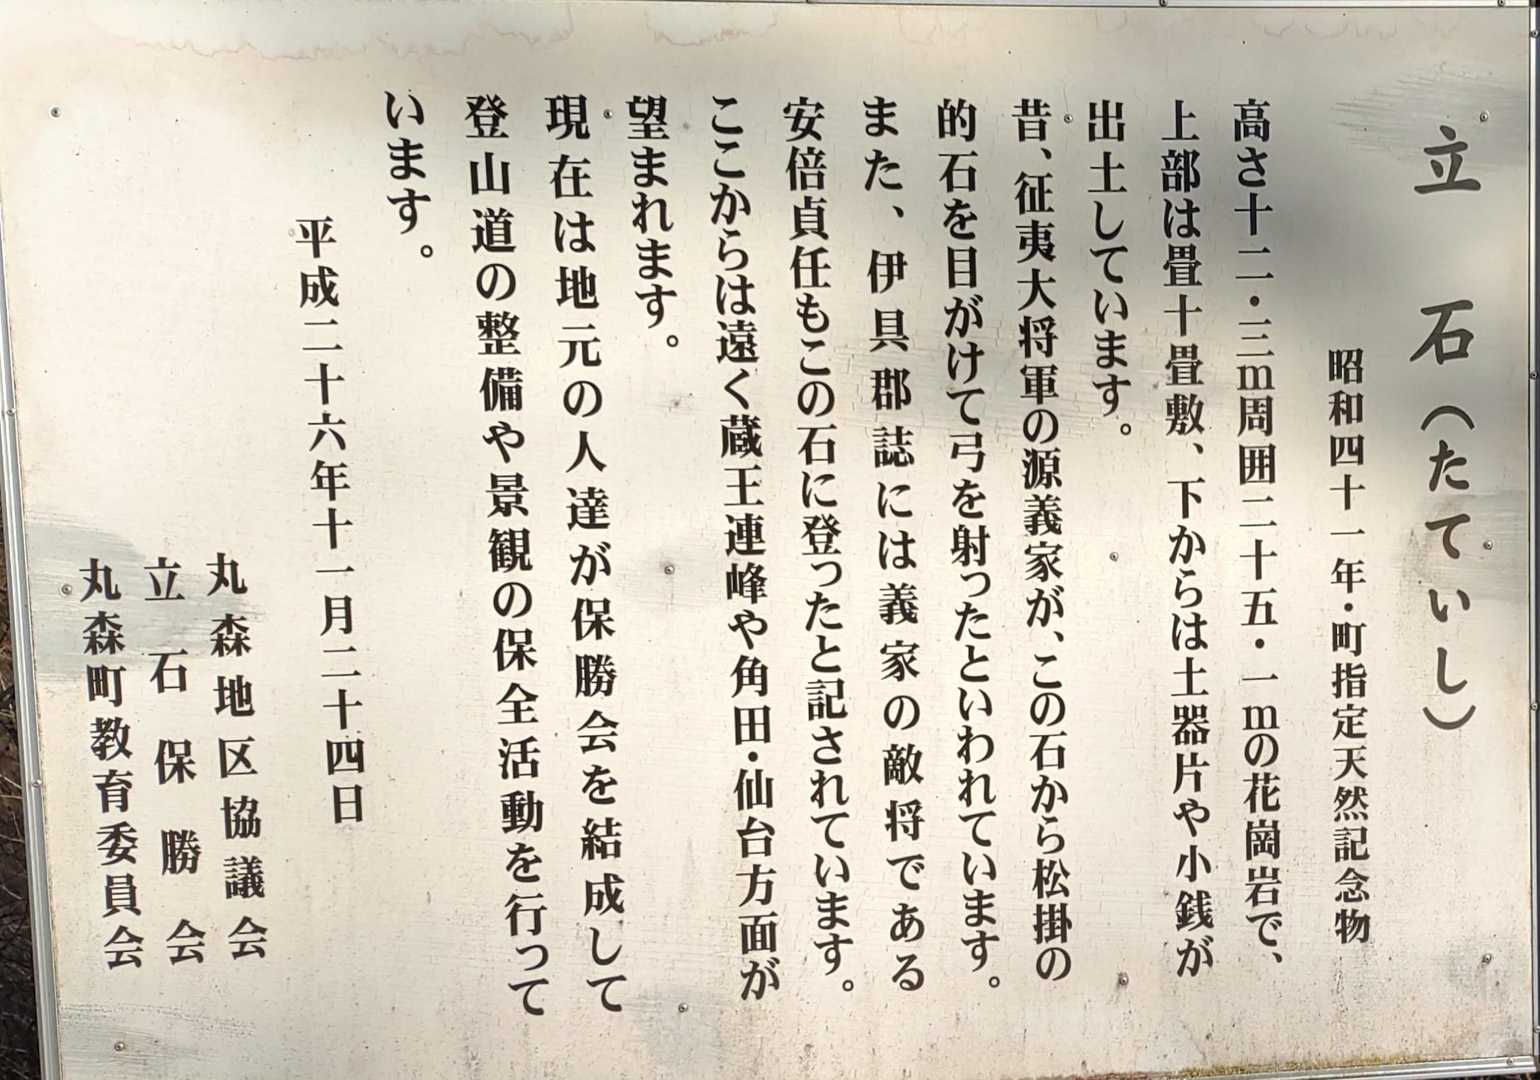 立石（たていし）
昭和四十一年・町指定天然記念物
高さ十二・三m周囲二十五・一mの花崗岩で、
上部は畳十畳敷、下からは土器片や小銭が
出土しています。
昔、征夷大将軍の源義家が、この石から松掛の
的石を目がけて弓を射ったといわれています。
また、伊具郡誌には義家の敵将である
安倍貞任もこの石に登ったと記されています。
ここからは遠く蔵王連峰や角田・仙台方面が
望まれます。
現在は地元の人達が保勝会を結成して
登山道の整備や景観の保全活動を行って
います。
平成二十六年十一月二十四日
丸森地区協議会
立石保勝会
丸森町教育委員会